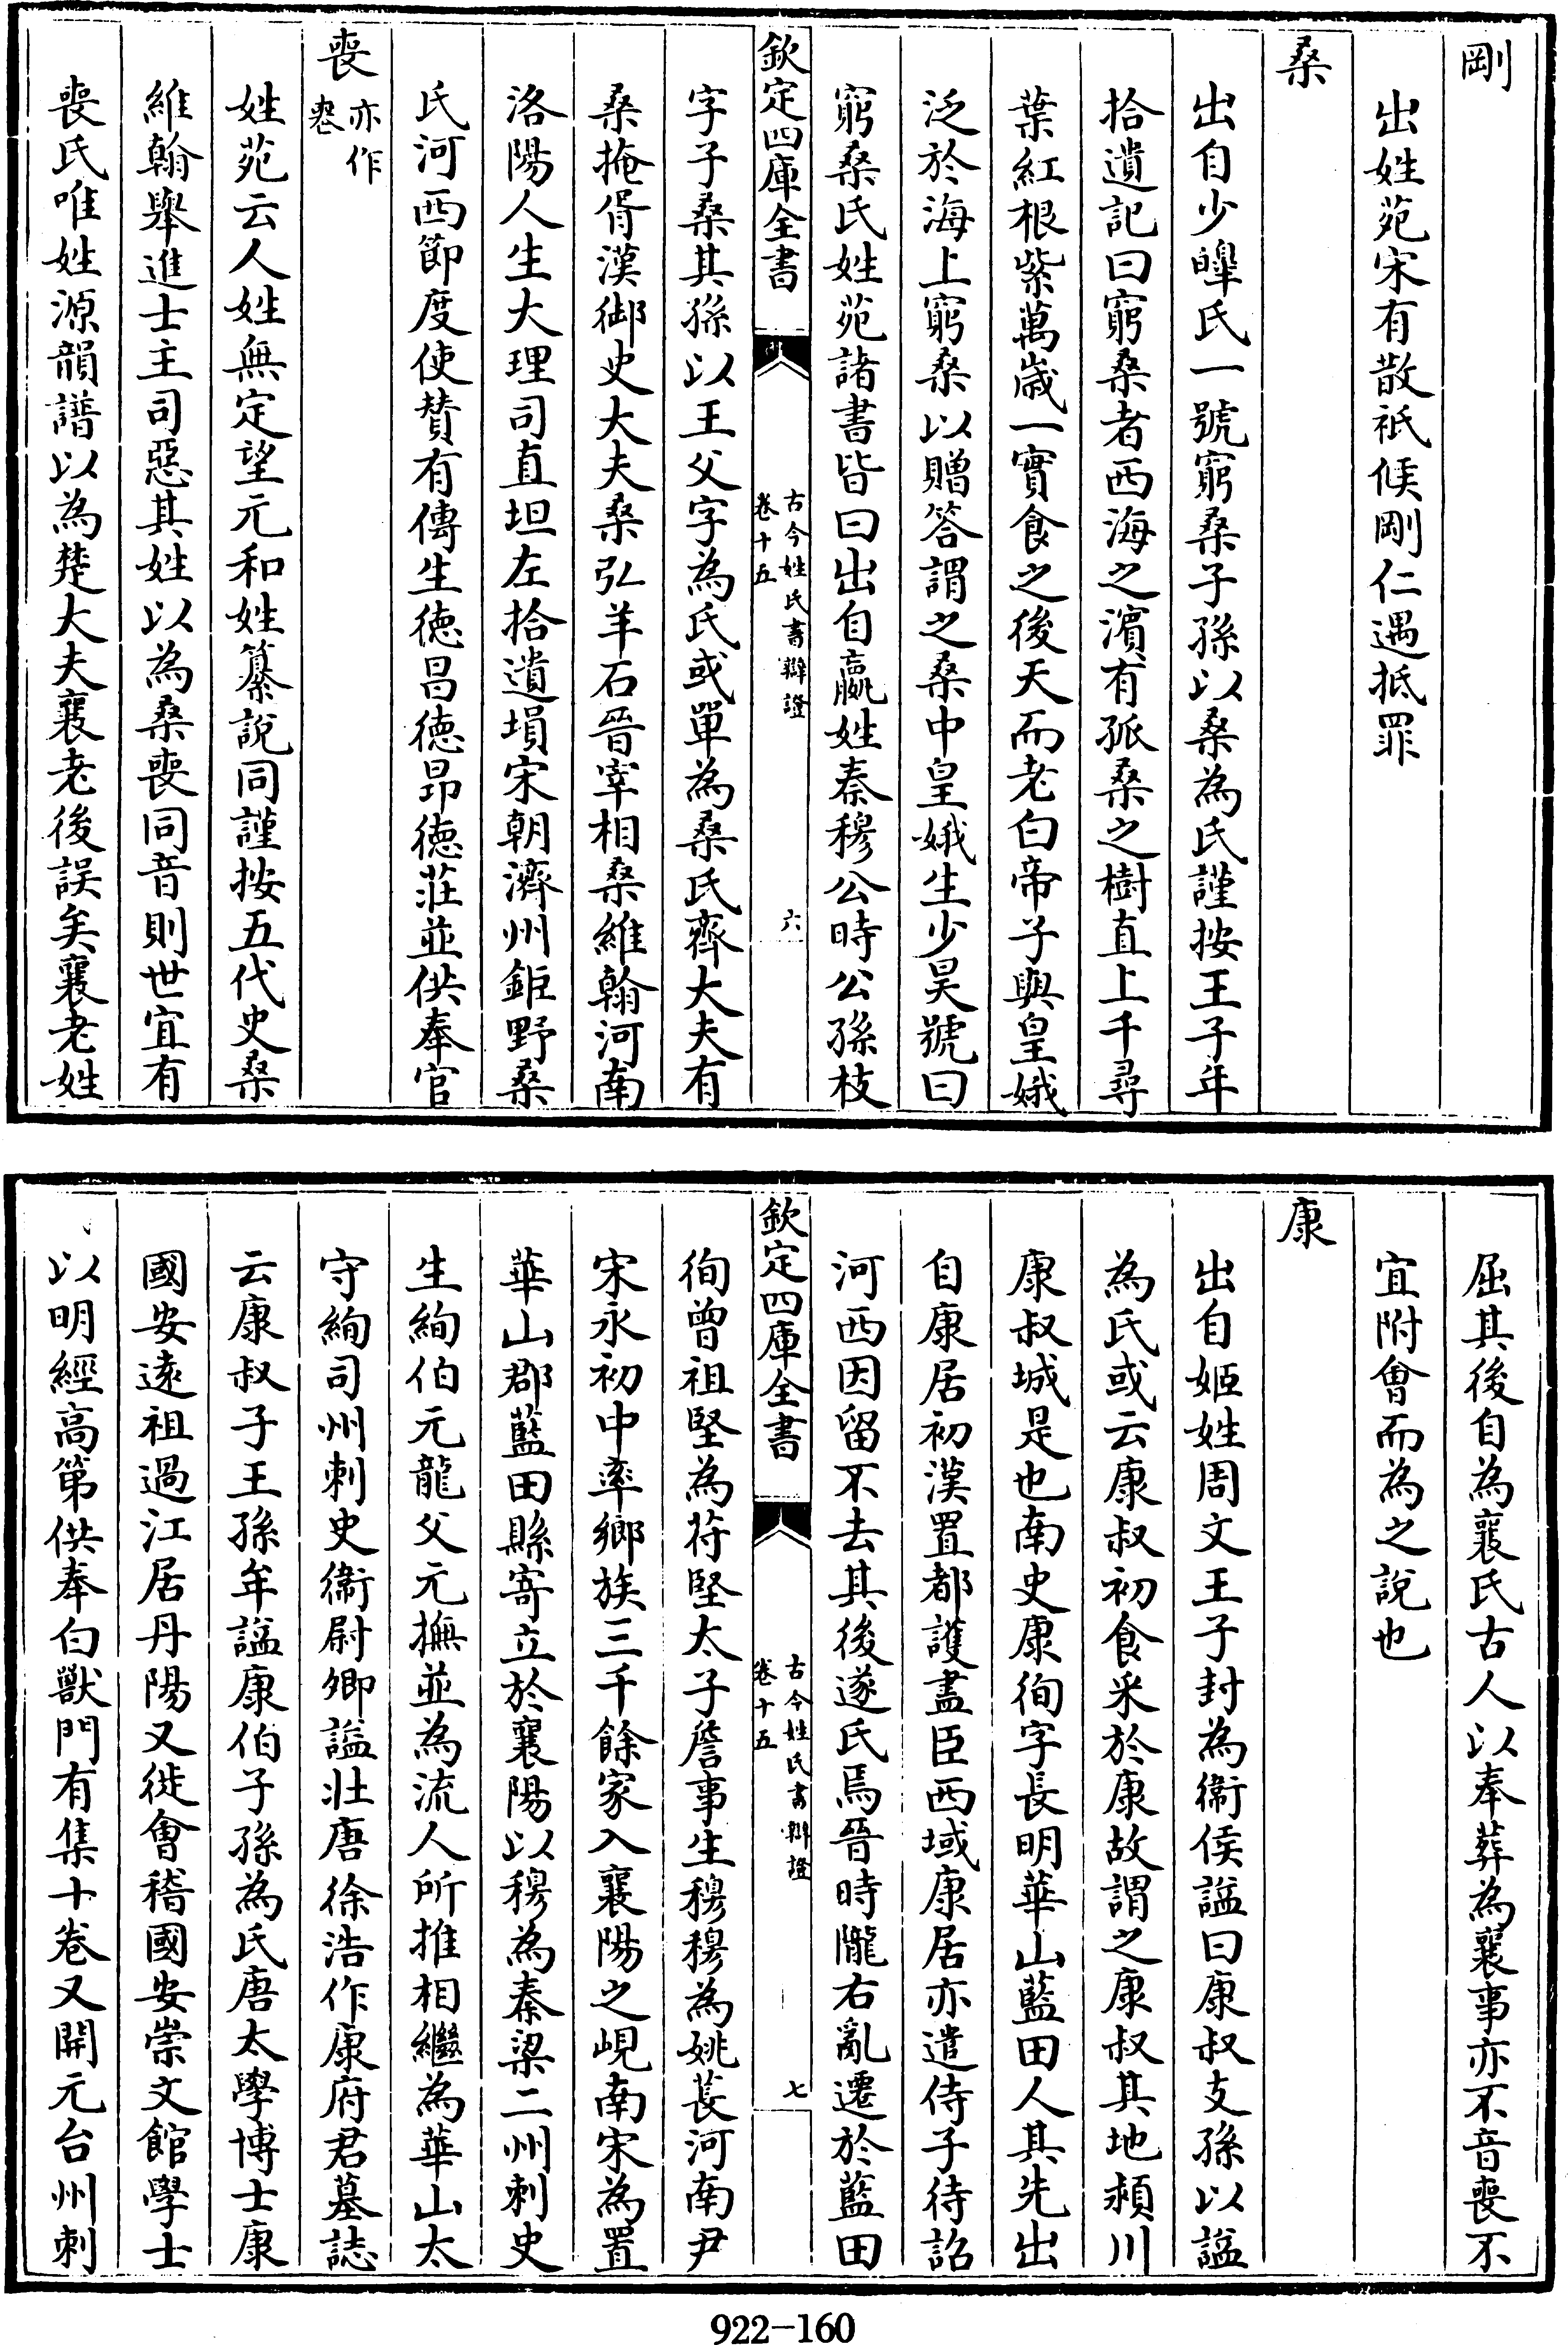 剛
出姓苑宋有散祇候剛仁遇抵罪
桑
出自少皥氏一號窮桑子孫以桑為氏謹按王子年
拾遺記曰窮桑者西海之濱有孤桑之樹直上千尋
葉紅根紫萬歲一實食之後天而老白帝子與皇娥
泛於海上窮桑以贈答謂之桑中皇娥生少昊號曰
窮桑氏姓苑諸書皆曰出自嬴姓秦穆公時公孫枝
欽定四庫全書
古今姓氏書辯證
卷十五
六
字子桑其孫以王父字為氏或單為桑氏齊大夫有
桑掩胥漢御史大夫桑弘羊石晉宰相桑維翰河南
洛陽人生大理司直坦左拾遺塤宋朝濟州鉅野桑
氏河西節度使贊有傳生徳昌徳昂徳莊並供奉官
喪
亦作
䘮
姓苑云人姓無定望元和姓纂說同謹按五代史桑
維翰舉進士主司惡其姓以為桑喪同音則世宜有
喪氏唯姓源韻譜以為楚大夫襄老後誤矣襄老姓
屈其後自為襄氏古人以奉葬為襄事亦不音喪不
宜附會而為之說也
康
出自姬姓周文王子封為衞侯謚曰康叔支孫以謚
為氏或云康叔初食采於康故謂之康叔其地頻川
康叔城是也南史康徇字長明華山藍田人其先出
自康居初漢置都護盡臣西域康居亦遣侍子待詔
河西因留不去其後遂氏焉晉時隴右亂遷於藍田
欽定四庫全書
古今姓氏書辯證
卷十五
七
徇曾祖堅為苻堅太子詹事生穆穆為姚萇河南尹
宋永初中率鄉族三千餘家入襄陽之峴南宋為置
華山郡藍田縣寄立於襄陽以穆為秦梁二州刺史
生絢伯元龍父元撫並為流人所推相繼為華山太
守絢司州刺史衞尉卿謚壯唐徐浩作康府君墓誌
云康叔子王孫牟謚康伯子孫為氏唐太學博士康
國安逺祖過江居丹陽又徙會稽國安崇文館學士
以明經高第供奉白獸門有集十卷又開元台州刺
922-160